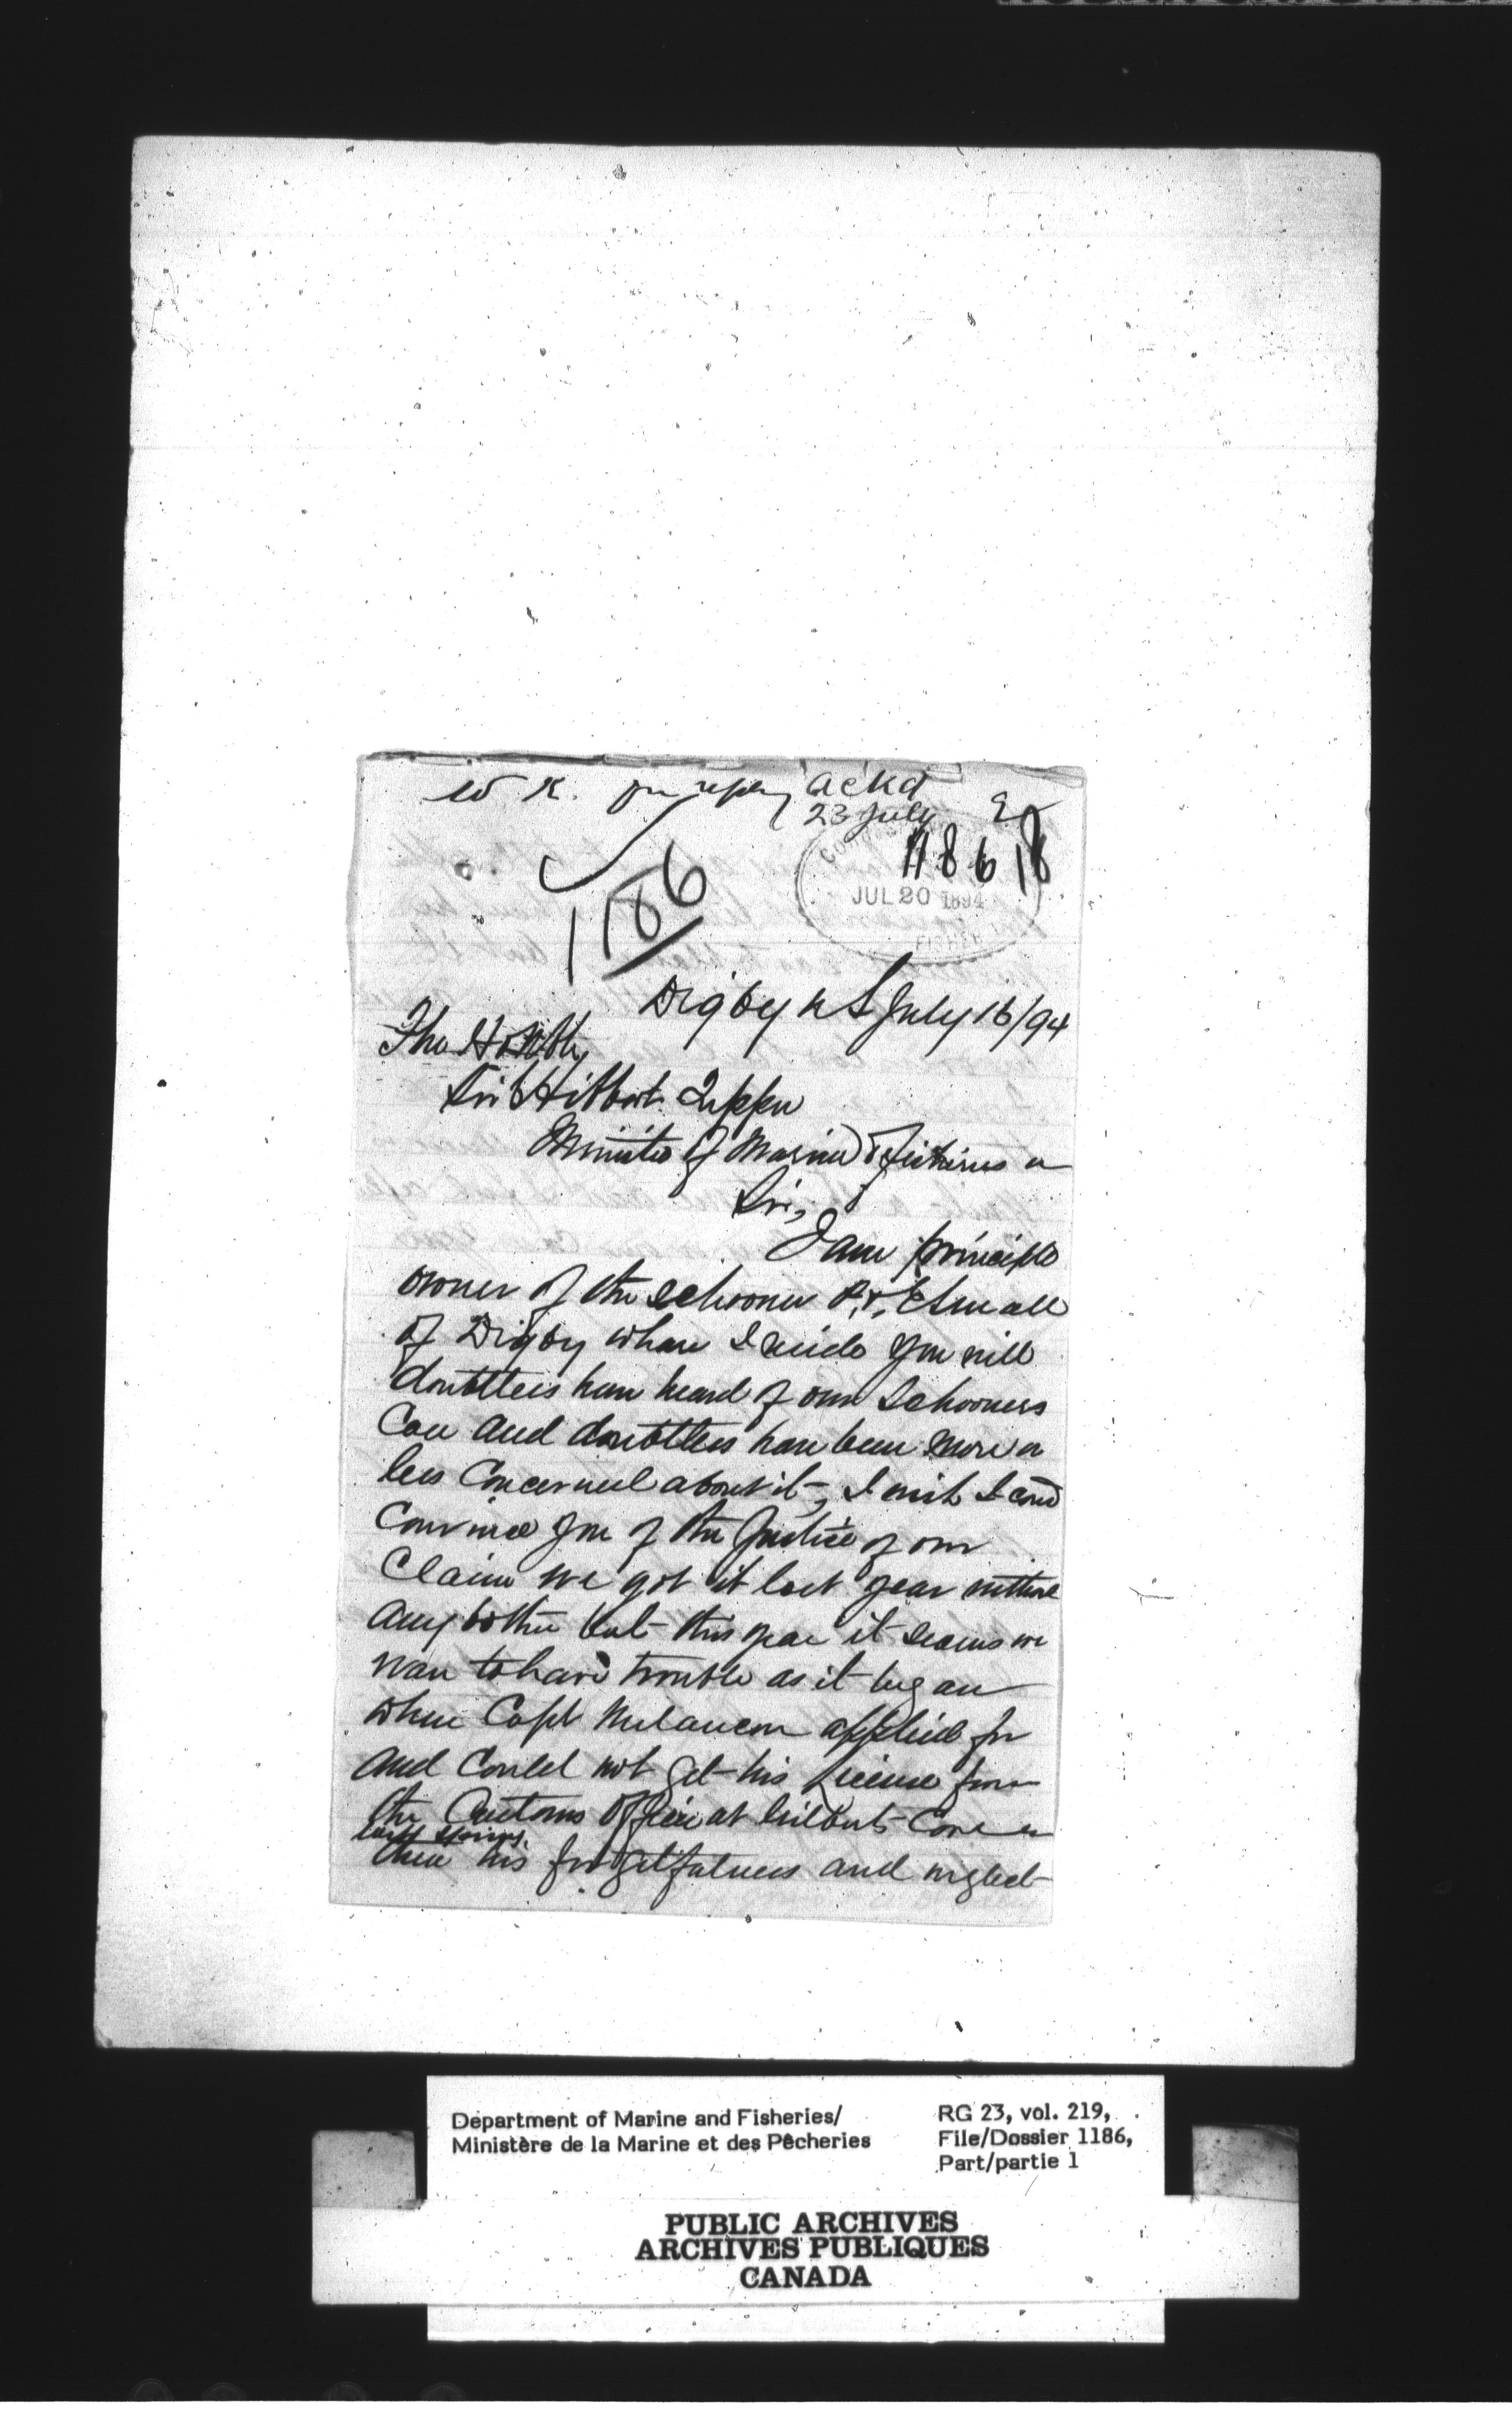 ackd
23 July
11861B
JUL 20 1894
FISHERI
1186
Digby N S July 16/94
The Honble
Sir C Hibbert Tupper
Minister of Marine & Fisheries
Sir,
I am principle
owner of the schooner P, & E Small
of Digby where I reside you will
doubtless have heard of our Schooners
Case and doubtless have been more or
less Concerned about it, I wish I could
Convince you of the Justice of our
Claim we got it last year without
any bother but this year it seems we
was to have trouble as it began
when Capt Melancon applied for
and Could not get his License from
the Customs Office at Gilberts Cove
last spring.
then his forgetfulness and neglect
Department of Marine and Fisheries/
Ministère de la Marine et des Pêcheries
RG 23, vol. 219,
File/Dossier 1186,
Part/partie 1
PUBLIC ARCHIVES
ARCHIVES PUBLIQUES
CANADA